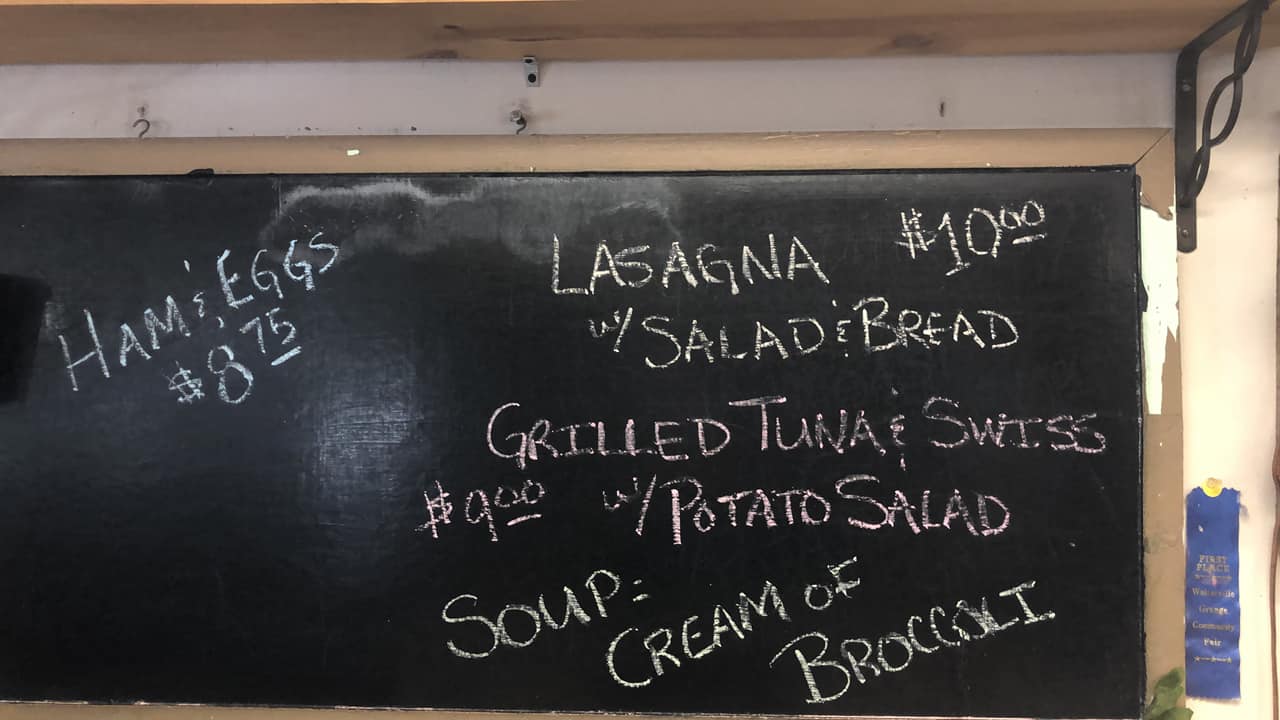 HAM & EGGS
$8.75
LASAGNA $10.00
w/ SALAD & BREAD
GRILLED TUNA & SWISS
$9.00 w/ POTATO SALAD
SOUP:
CREAM OF
BROCCOLI
FIRST
PLACE
Grange
Community
Fair